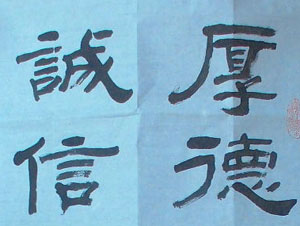 厚德
誠信